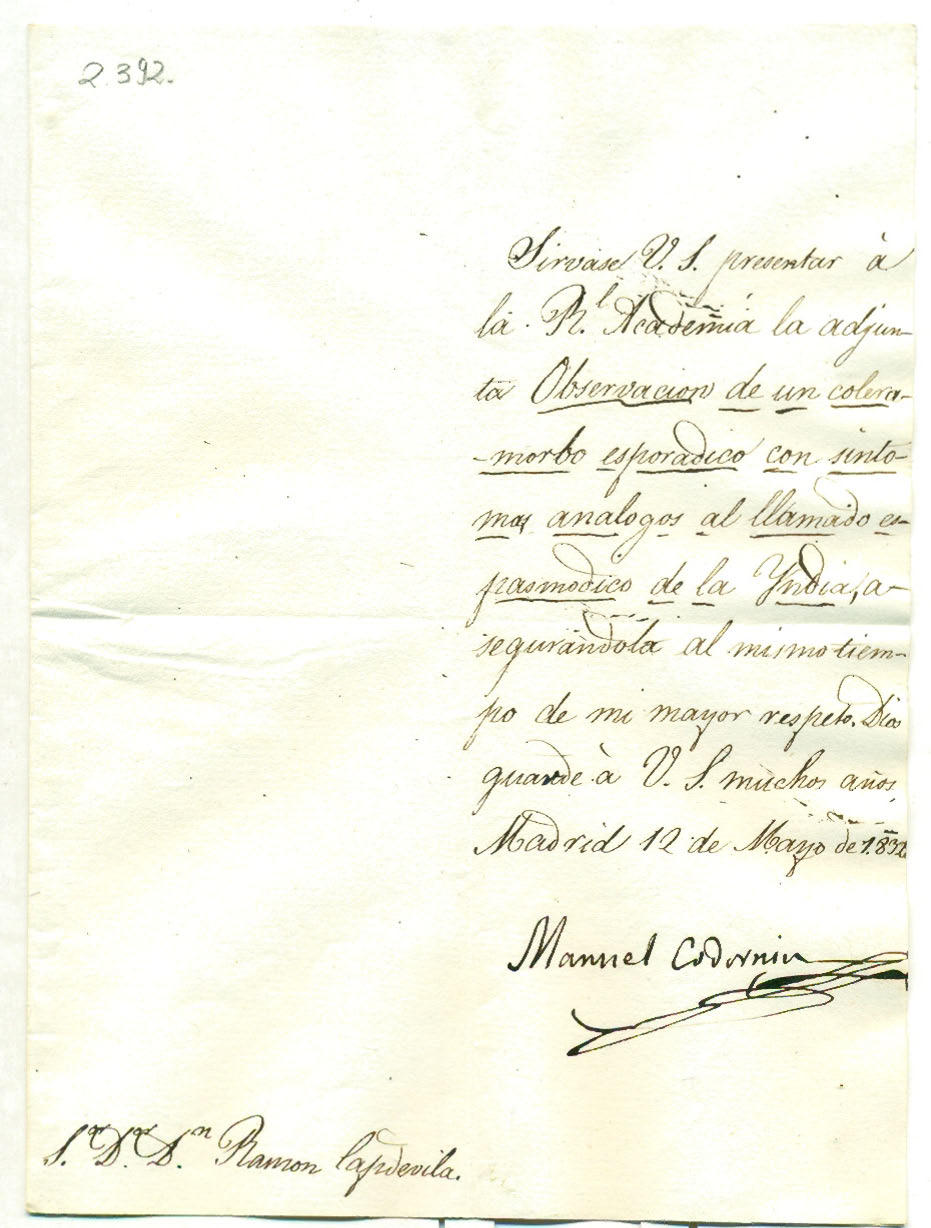 2.392.
Sirvase V. S. presentar à
la R.l Academia la adjun-
ta Observacion de un colera-
-morbo esporadico con sinto-
mas analogos al llamado es-
pasmodico de la Yndia, a-
segurándola al mismo tiem-
po de mi mayor respeto. Dios
guarde à V. S. muchos años
Madrid 12 de Mayo de 1.832
Manuel Codorniu
S.or D.or D.n Ramon Capdevila.